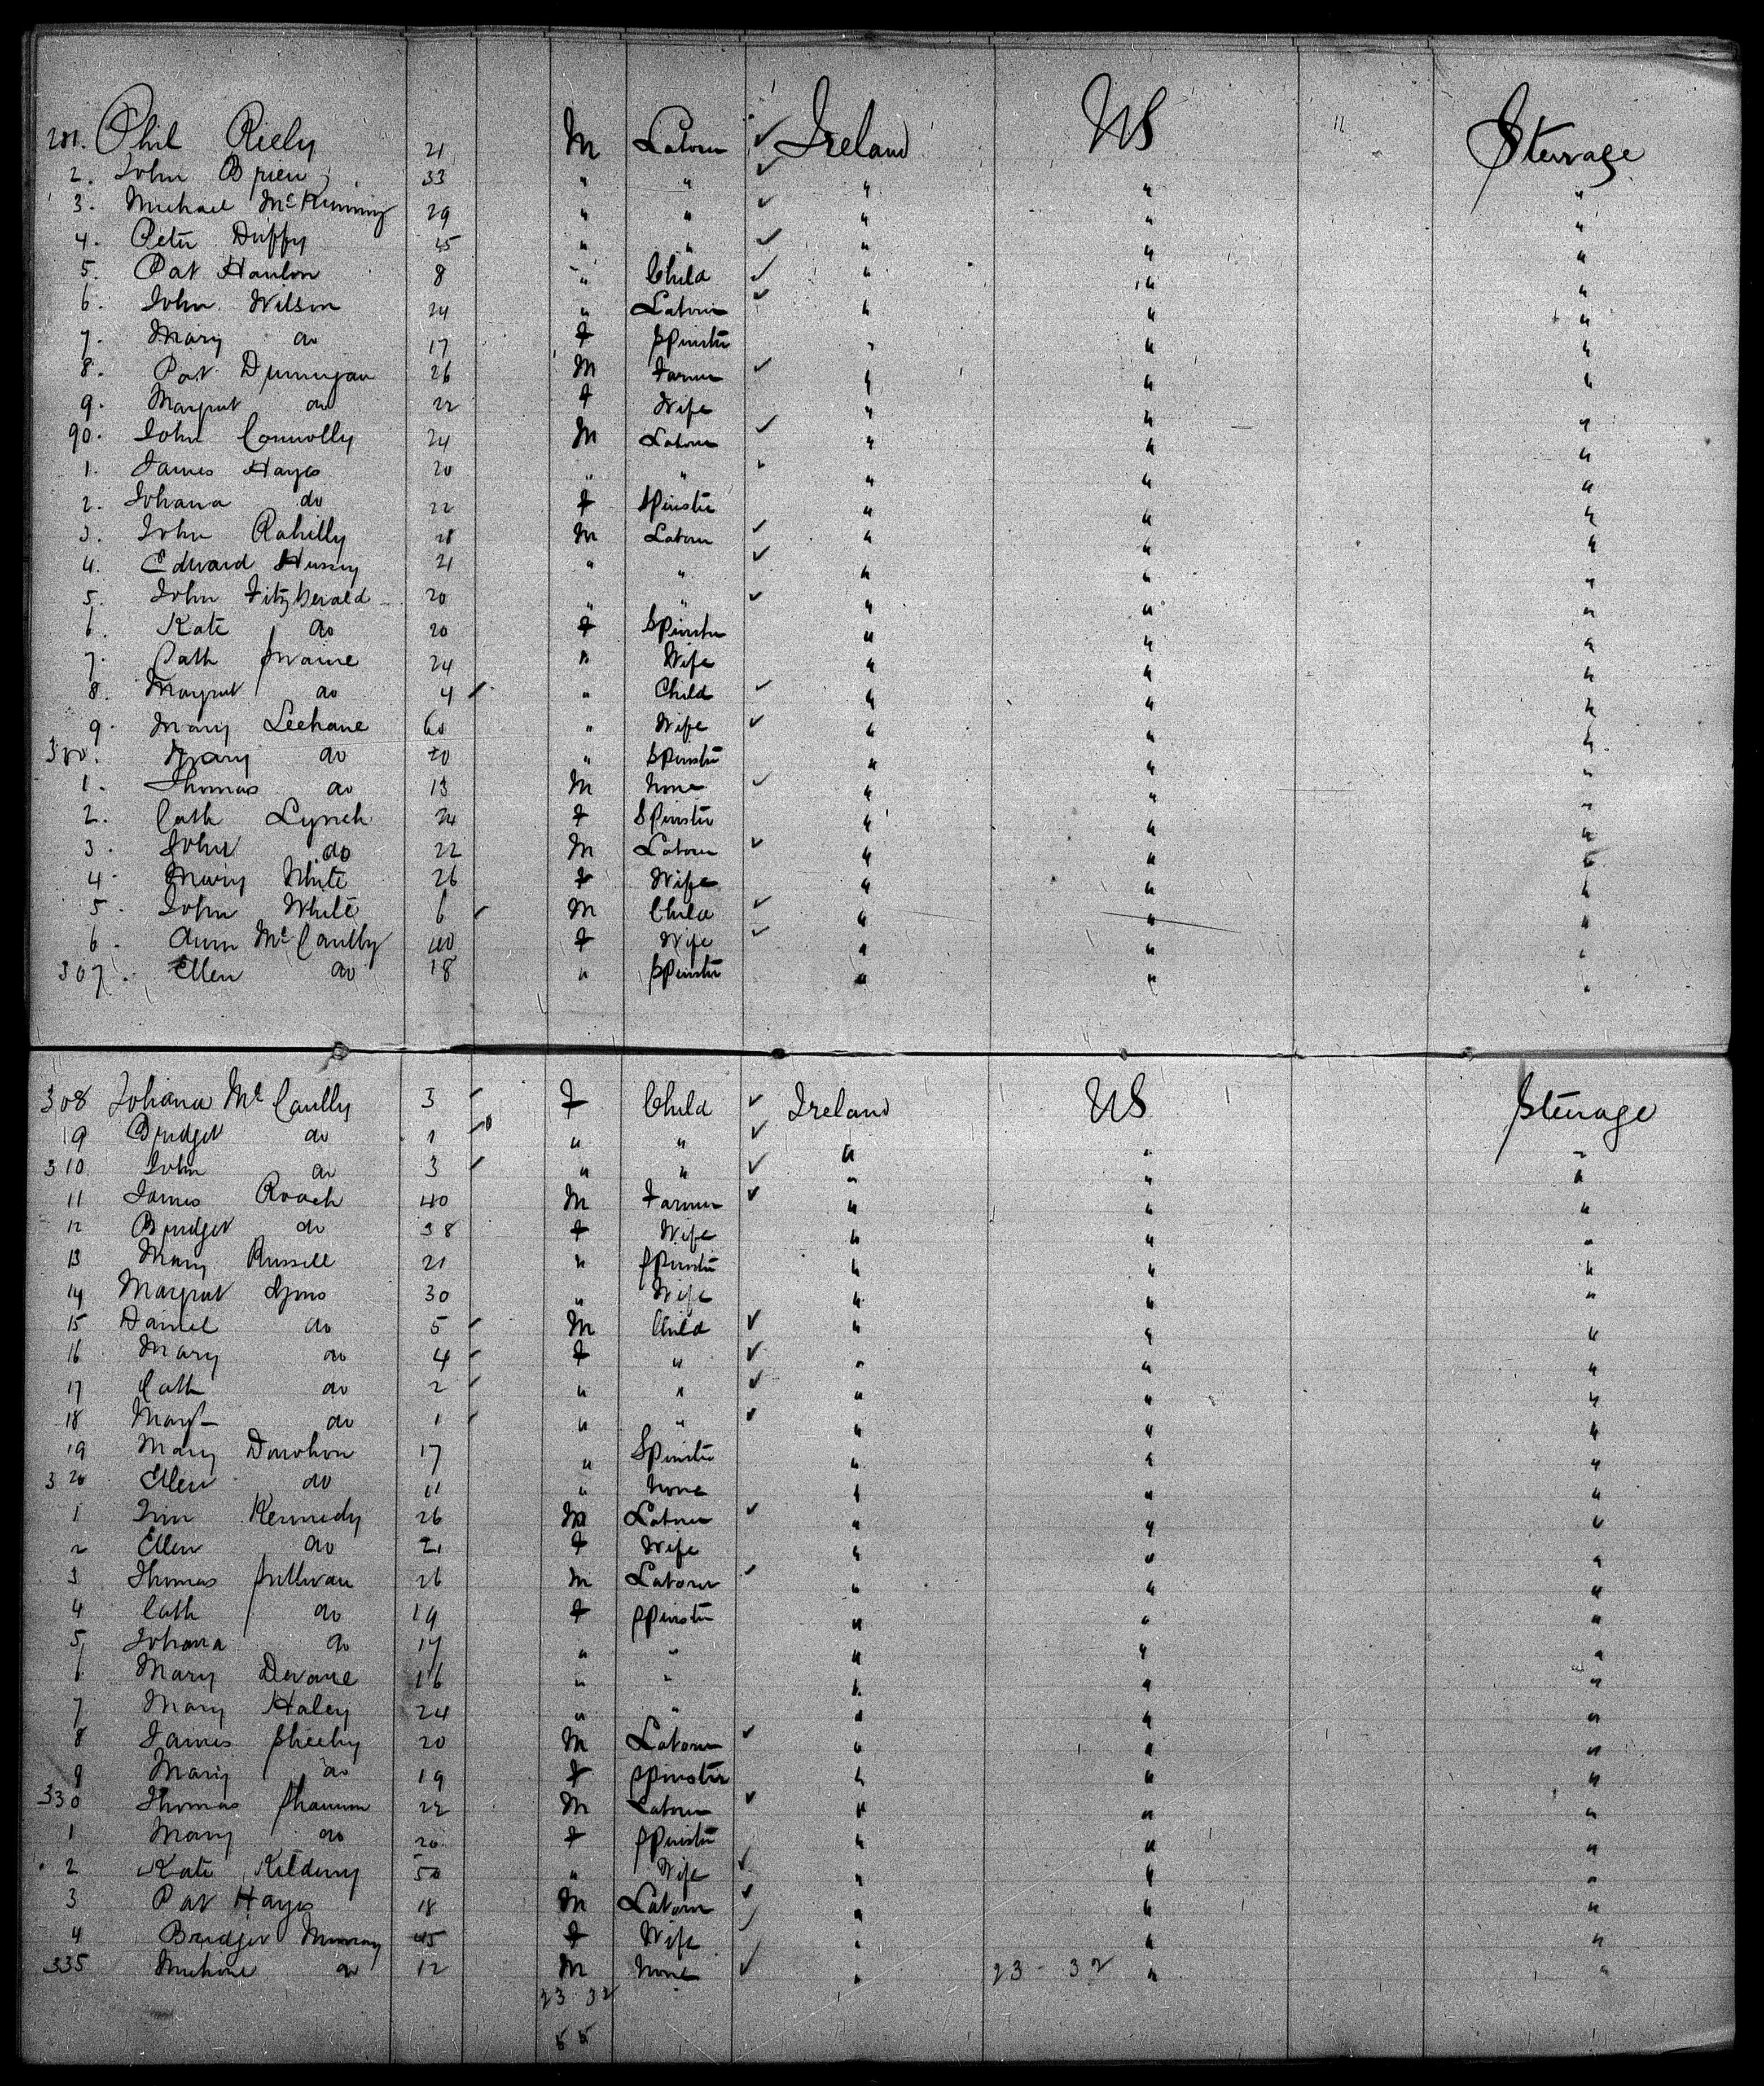 281. Phil Riely 21 M Laborer ✓ Ireland US Steerage
2. John Brien 33 " " ✓ " " "
3. Michael 29 " " ✓ " " "
4. Peter Duffy 45 " " ✓ " " "
5. Pat Hanlon 8 " Child ✓ " " "
6. John Wilson 24 " Laborer ✓ " " "
7. Mary do 17 F Spinster " " "
8. Pat Dunnigan 26 M Farmer ✓ " " "
9. Margret do 22 F Wife " " "
90. John Connolly 24 M Laborer ✓ " " "
1. James Hayes 20 " " ✓ " " "
2. Johana do 22 F Spinster " " "
3. John Rahilly 28 M Laborer ✓ " " "
4. Edward Hussey 21 " " ✓ " " "
5. John FitzGerald 20 " " ✓ " " "
6. Kate do 20 F Spinster " " "
7. Cath Swaine 24 " Wife " " "
8. Margret do 4 ✓ " Child ✓ " " "
9. Mary Leehane 60 " Wife ✓ " " "
300. Mary do 20 " Spinster " " "
1. Thomas do 13 M None ✓ " " "
2. Cath Lynch 24 F Spinster " " "
3. John do 22 M Laborer ✓ " " "
4. Mary White 26 F Wife " " "
5. John White 6 ✓ M Child ✓ " " "
6. Ann McCaully 40 F Wife ✓ " " "
307. Ellen do 18 " Spinster " " "
308 Johana McCaully 3 ✓ F Child ✓ Ireland US Steerage
9 Bridget do 1 ✓ " " ✓ " " "
310 John do 3 ✓ " " ✓ " " "
11 James Roach 40 M Farmer ✓ " " "
12 Bridget do 38 F Wife " " "
13 Mary Russell 21 " Spinster " " "
14 Margret Lyons 30 " Wife " " "
15 Daniel do 5 ✓ M Child ✓ " " "
16 Mary do 4 ✓ F " ✓ " " "
17 Cath do 2 ✓ " " ✓ " " "
18 Margt do 1 ✓ " " ✓ " " "
19 Mary Donohoe 17 " Spinster " " "
320 Ellen do 11 " None " " "
1 Tim Kennedy 26 M Laborer ✓ " " "
2 Ellen do 21 F Wife " " "
3 Thomas Sullivan 26 M Laborer ✓ " " "
4 Cath do 19 F Spinster " " "
5 Johana do 17 " " " " "
6 Mary Devane 16 " " " " "
7 Mary Haley 24 " " " " "
8 James Sheehy 20 M Laborer ✓ " " "
9 Mary do 19 F Spinster " " "
330 Thomas Shannon 22 M Laborer ✓ " " "
1 Mary do 20 F Spinster " " "
2 Kate 50 " Wife ✓ " " "
3 Pat Hayes 18 M Laborer ✓ " " "
4 Bridget Murray 45 F Wife ✓ " " "
335 do 12 M None ✓ " 23-32 " "
23 32
55